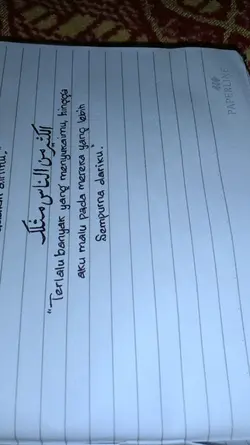 الكثير من الناس مثلك
"Terlalu banyak yang menyukaimu, hingga
aku malu pada mereka yang lebih
Sempurna dariku."
PAPERLINE